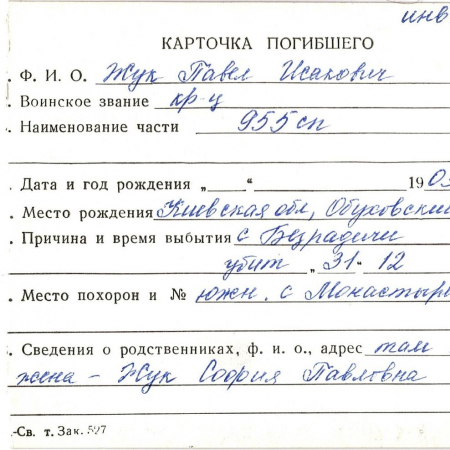 инв
КАРТОЧКА ПОГИБШЕГО
. Ф. И. О. Жук Павел Исакович
. Воинское звание кр-ц
. Наименование части 955 сп
. Дата и год рождения „ “ 1903
. Место рождения Киевская обл, Обуховский
. Причина и время выбытия с Безрадичи
убит „31“ 12
. Место похорон и № южн. с Монастыр
. Сведения о родственниках, ф. и. о., адрес там
жена - Жук София Павловна
-Св. т. Зак. 597